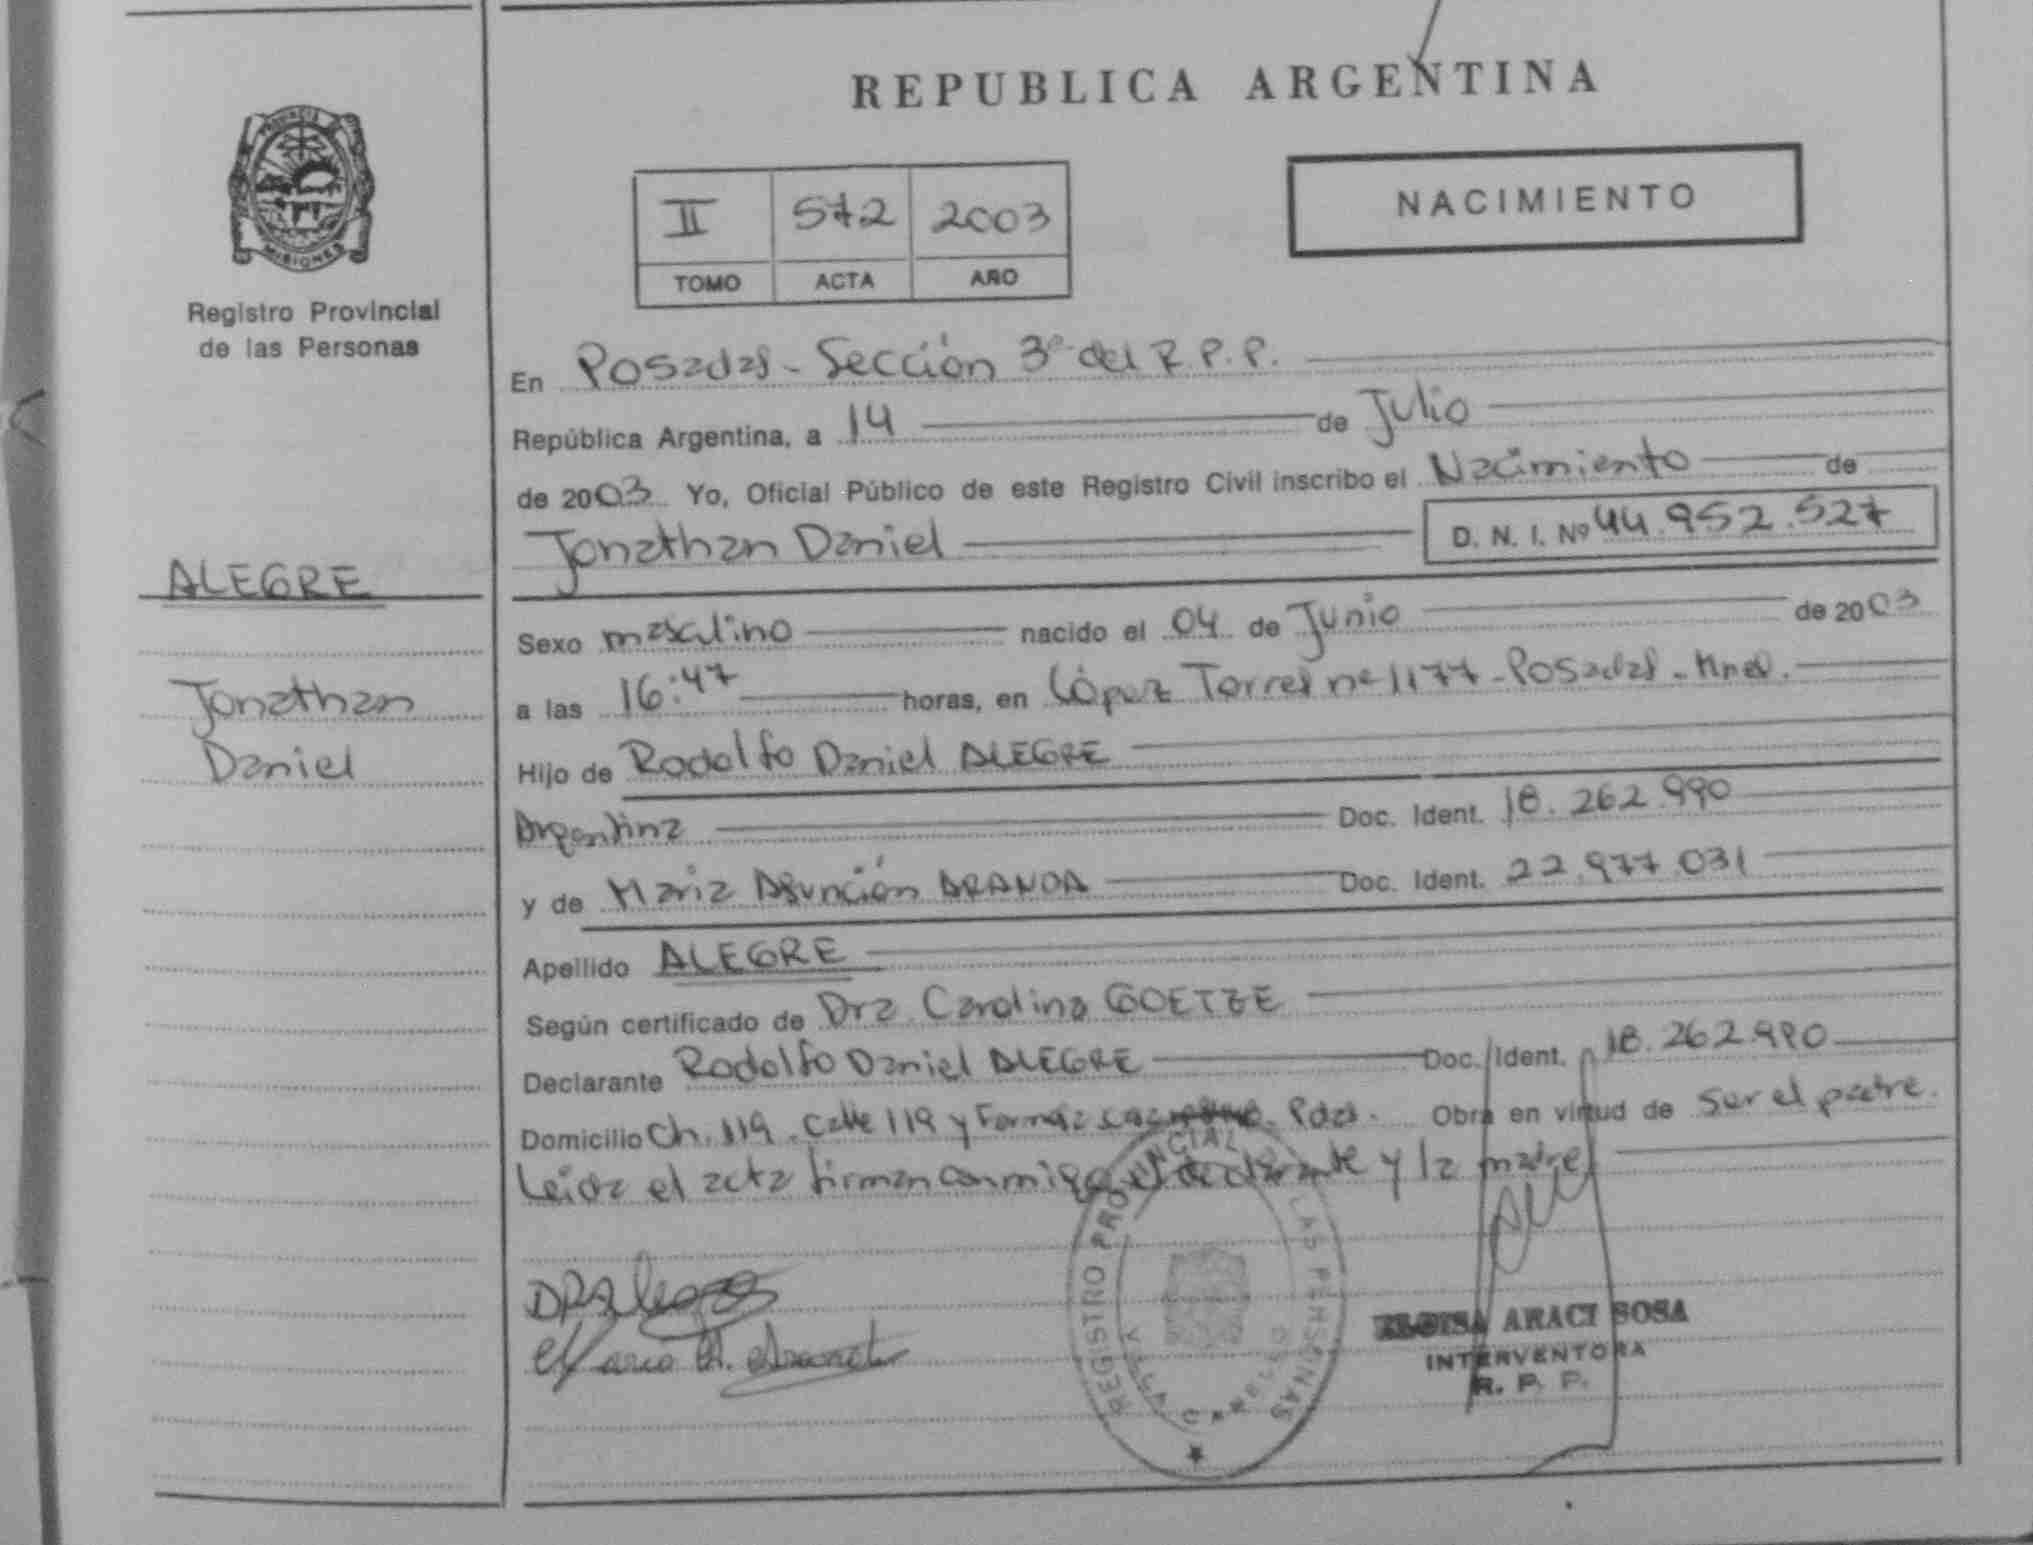 REPUBLICA ARGENTINA
PROVINCIA DE
MISIONES
Registro Provincial
de las Personas
NACIMIENTO
II 572 2003
TOMO ACTA AÑO
En Posadas - Sección 3º del R.P.P.
República Argentina, a 14 de Julio
de 2003 Yo, Oficial Público de este Registro Civil inscribo el Nacimiento de
Jonathan Daniel D. N. I. Nº 44.952.527
ALEGRE
Jonathan
Daniel
Sexo masculino nacido el 04 de Junio de 2003
a las 16:47 horas, en López Torres nº 1177 - Posadas - Mnes.
Hijo de Rodolfo Daniel ALEGRE
Argentina Doc. Ident. 18.262.990
y de Maria Asunción ARANDA Doc. Ident. 22.977.031
Apellido ALEGRE
Según certificado de Dra. Carolina GOETZE
Declarante Rodolfo Daniel ALEGRE Doc. Ident. 18.262.990
Domicilio Ch. 119. Calle 119 y Pdas. Obra en virtud de ser el padre.
Leida el acta firman conmigo el declarante y la madre
REGISTRO PROVINCIAL DE LAS PERSONAS
ELOISA ARACI SOSA
INTERVENTORA
R. P. P.